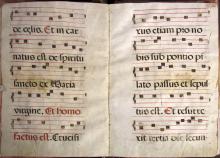 de celis. Et in car
natus est de spiritu
sancto ex Maria
virgine, Et homo
factus est. Crucifi
xus etiam pro no
bis sub pontio pi
lato passus et sepul
tus est. Et resurre
xit tertia die, secun